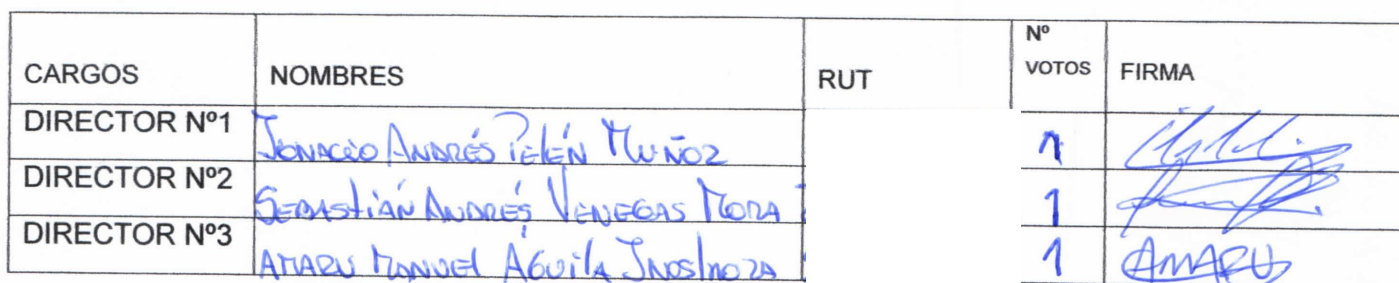 CARGOS NOMBRES RUT Nº VOTOS FIRMA
DIRECTOR Nº1 IGNACIO ANDRÉS PELÉN MUÑOZ 1
DIRECTOR Nº2 SEBASTIÁN ANDRÉS VENEGAS MORA 1
DIRECTOR Nº3 AMARU MANUEL ÁGUILA INOSTROZA 1 AMARU